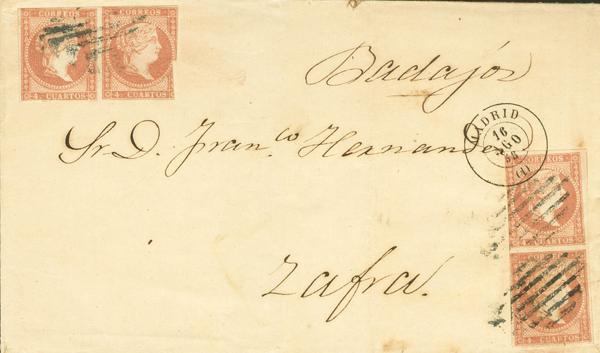 CORREOS CORREOS
4. CUARTOS 4. CUARTOS
Badajós
MADRID
16
AGO
(1)
Sr. D. Franco Hernandez
CORREOS
4 CUARTOS
CORREOS
4. CUARTOS
Zafra.